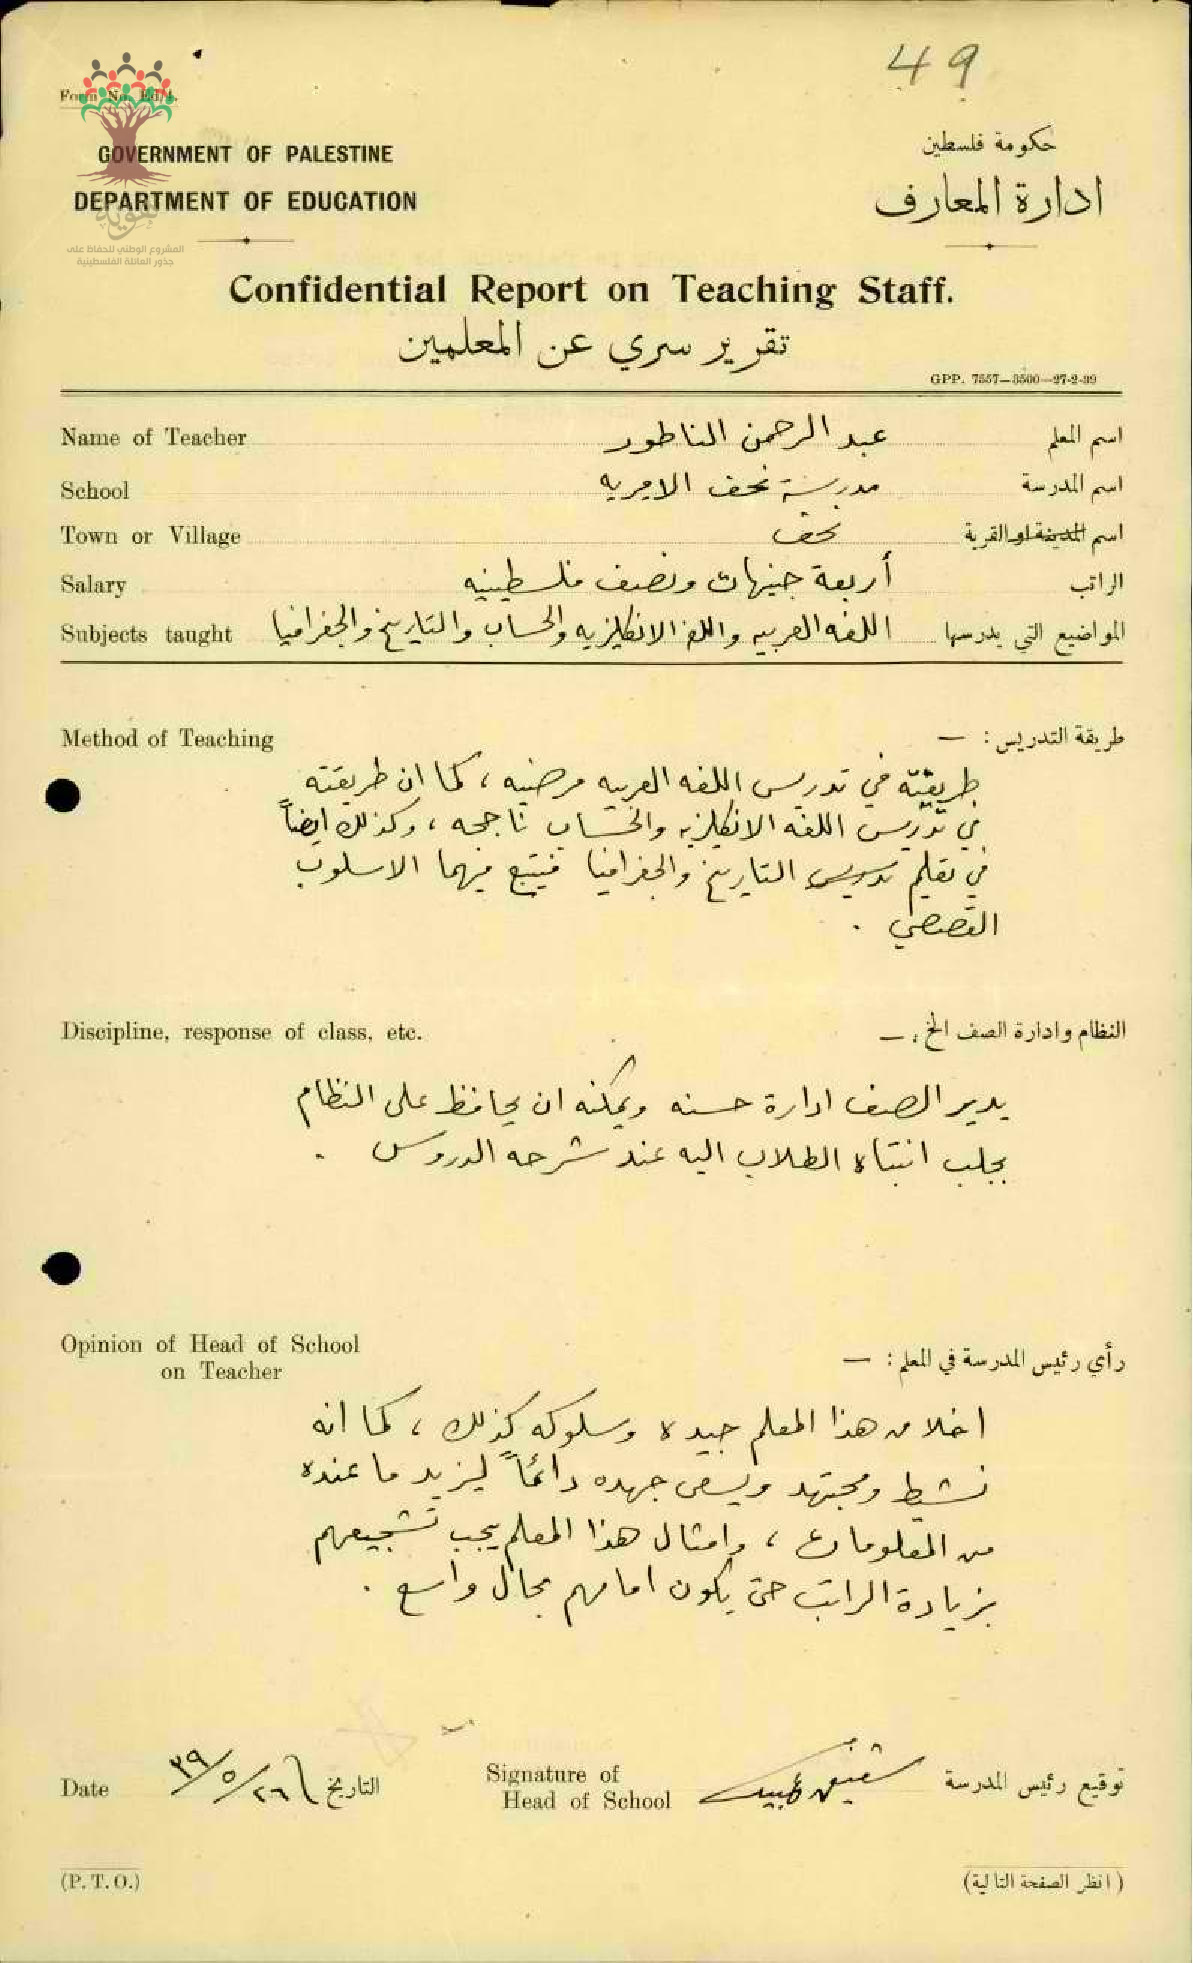 49
Form No. Ed/1.
GOVERNMENT OF PALESTINE
حكومة فلسطين
DEPARTMENT OF EDUCATION
ادارة المعارف
هوية
المشروع الوطني للحفاظ على
جذور العائلة الفلسطينية
Confidential Report on Teaching Staff.
تقرير سري عن المعلمين
GPP. 7557—3500—27-2-39
Name of Teacher عبد الرحمن الناطور اسم المعلم
School مدرسة نحف الاميريه اسم المدرسة
Town or Village نحف اسم المدينة او القرية
Salary أربعة جنيهات ونصف فلسطينيه الراتب
Subjects taught اللغه العربيه واللغه الانكليزيه والحساب والتاريخ والجغرافيا المواضيع التي يدرسها
Method of Teaching طريقة التدريس : —
طريقته في تدريس اللغه العربيه مرضيه ، كما ان طريقته
في تدريس اللغه الانكليزيه والحساب ناجحه ، وكذلك ايضاً
في تعليم تدريس التاريخ والجغرافيا فيتبع فيهما الاسلوب
القصصي .
Discipline, response of class, etc. النظام وادارة الصف الخ . —
يدير الصف ادارة حسنه ويمكنه ان يحافظ على النظام
بجلب انتباه الطلاب اليه عند شرحه الدروس .
Opinion of Head of School
on Teacher
رأي رئيس المدرسة في المعلم : —
اخلاق هذا المعلم جيده وسلوكه كذلك ، كما انه
نشيط ومجتهد ويسعى جهده دائماً ليزيد ما عنده
من المعلومات ، وامثال هذا المعلم يجب تشجيعهم
بزيادة الراتب حتى يكون امامهم مجال واسع .
Date ٢٦/٥/٣٩ التاريخ
Signature of
Head of School
شفيق توقيع رئيس المدرسة
(P. T. O.) (انظر الصفحة التالية)